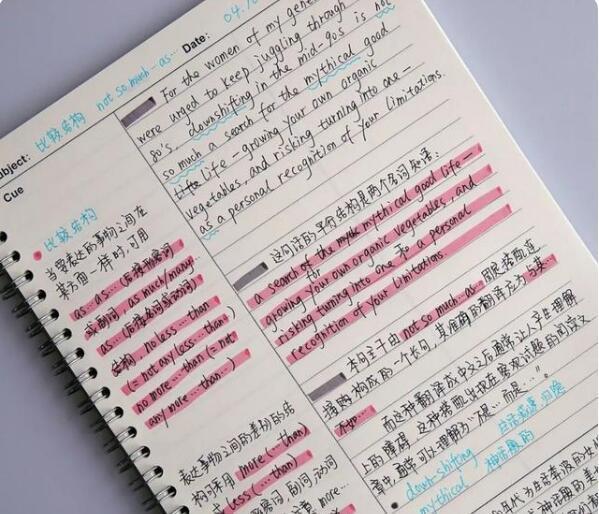 Date: 04.10
Subject: 比较结构 not so much…as…
Cue
比较结构
当要表达的事物之间在
某方面一样时,可用
as…as…(后接形容词
或副词), as much/many…
as…(后接名词或动词)
结构, no less…than
(= not any less…than)
no more…than (= not
any more…than…)
表达事物之间的差别的结
构可采用 more(…than)
或 less(…than)
For the women of my gene
were urged to keep juggling through
80's, downshifting in the mid-90s is not
so much a search for the mythical good
life – growing your own organic
vegetables, and risking turning into one –
as a personal recognition of your limitations.
这句话的平行结构是两个名词短语:
a search of the mythical good life –
for
growing your own organic vegetables, and
risking turning into one 和 a personal
recognition of your limitations
本句主干由 not so much…as 固定搭配连
接购构成的一个长句,其准确的翻译应为"与其…
不如…"
而这种翻译成中文之后通常让人产生理解
上的障碍,这种搭配出现在客观试题的阅读文
章中,通常可以理解为"不是…而是…"。
down-shifting
mythical 神话般的